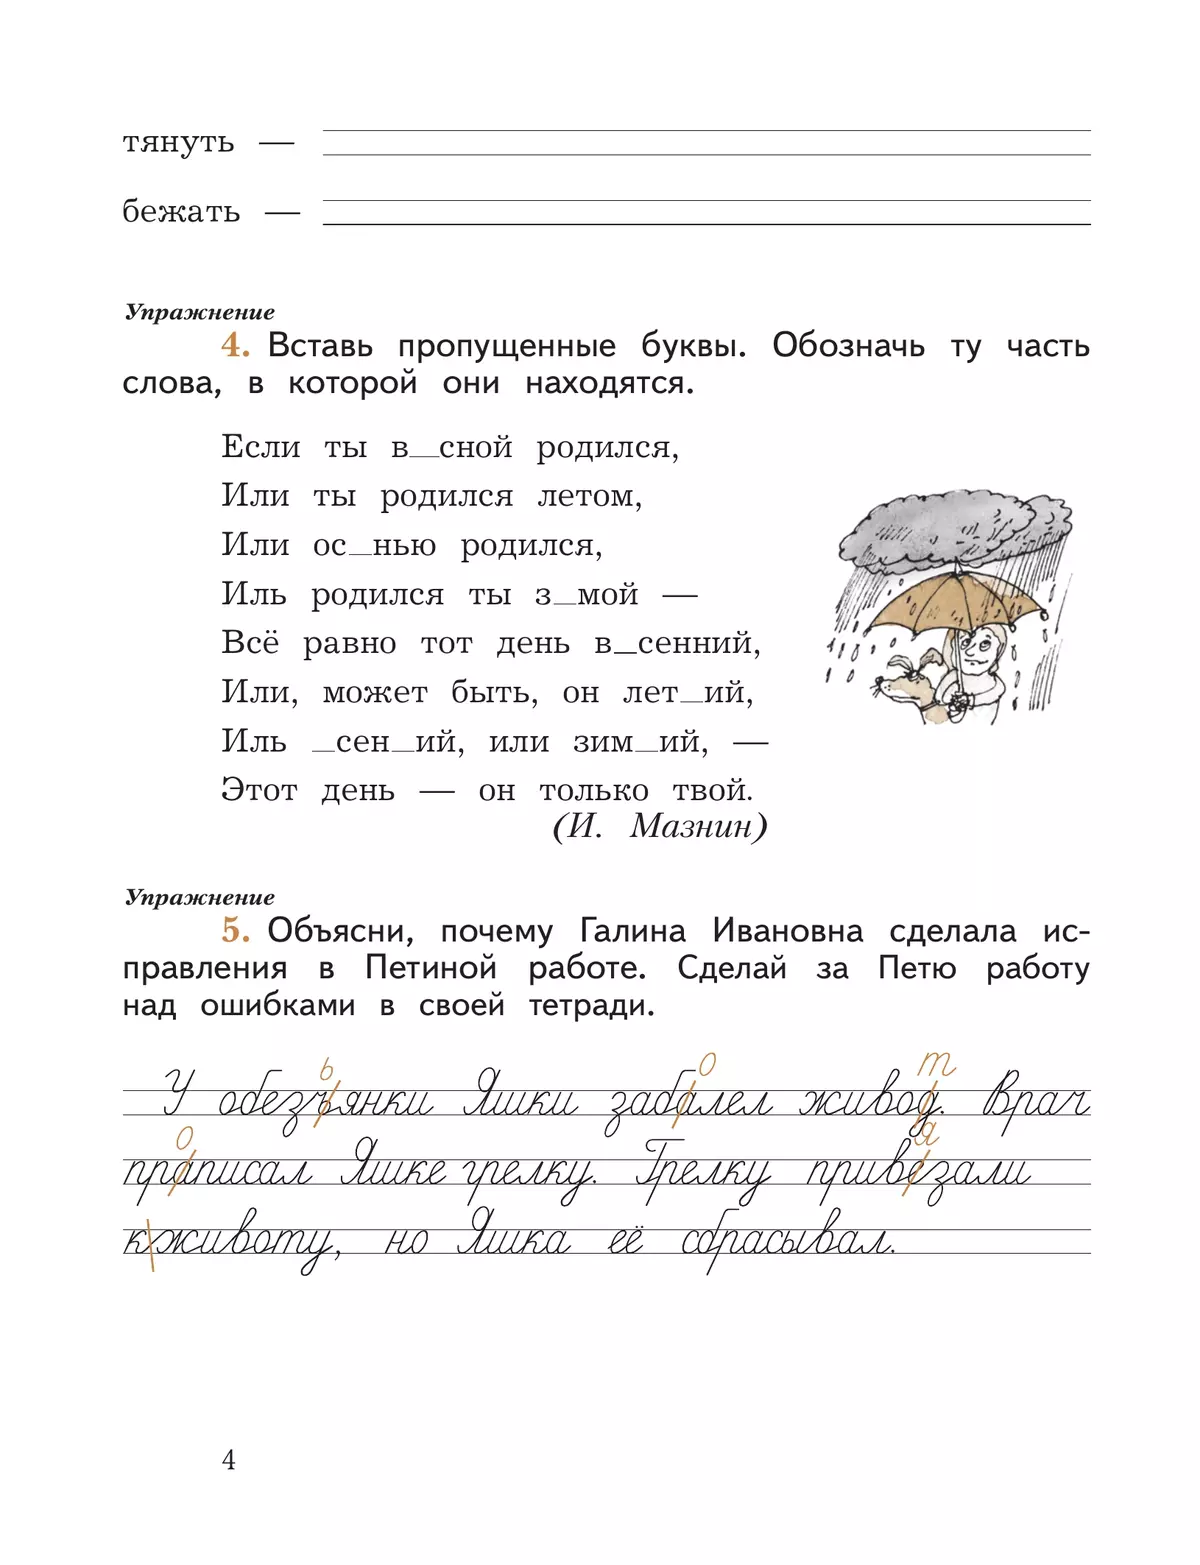 тянуть —
бежать —
Упражнение
4. Вставь пропущенные буквы. Обозначь ту часть
слова, в которой они находятся.
Если ты в_сной родился,
Или ты родился летом,
Или ос_нью родился,
Иль родился ты з_мой —
Всё равно тот день в_сенний,
Или, может быть, он лет_ий,
Иль _сен_ий, или зим_ий, —
Этот день — он только твой.
(И. Мазнин)
Упражнение
5. Объясни, почему Галина Ивановна сделала ис-
правления в Петиной работе. Сделай за Петю работу
над ошибками в своей тетради.
ь о т
У обезъянки Яшки забалел живод. Врач
о я
праписал Яшке грелку. Грелку привезали
к|животу, но Яшка её сбрасывал.
4